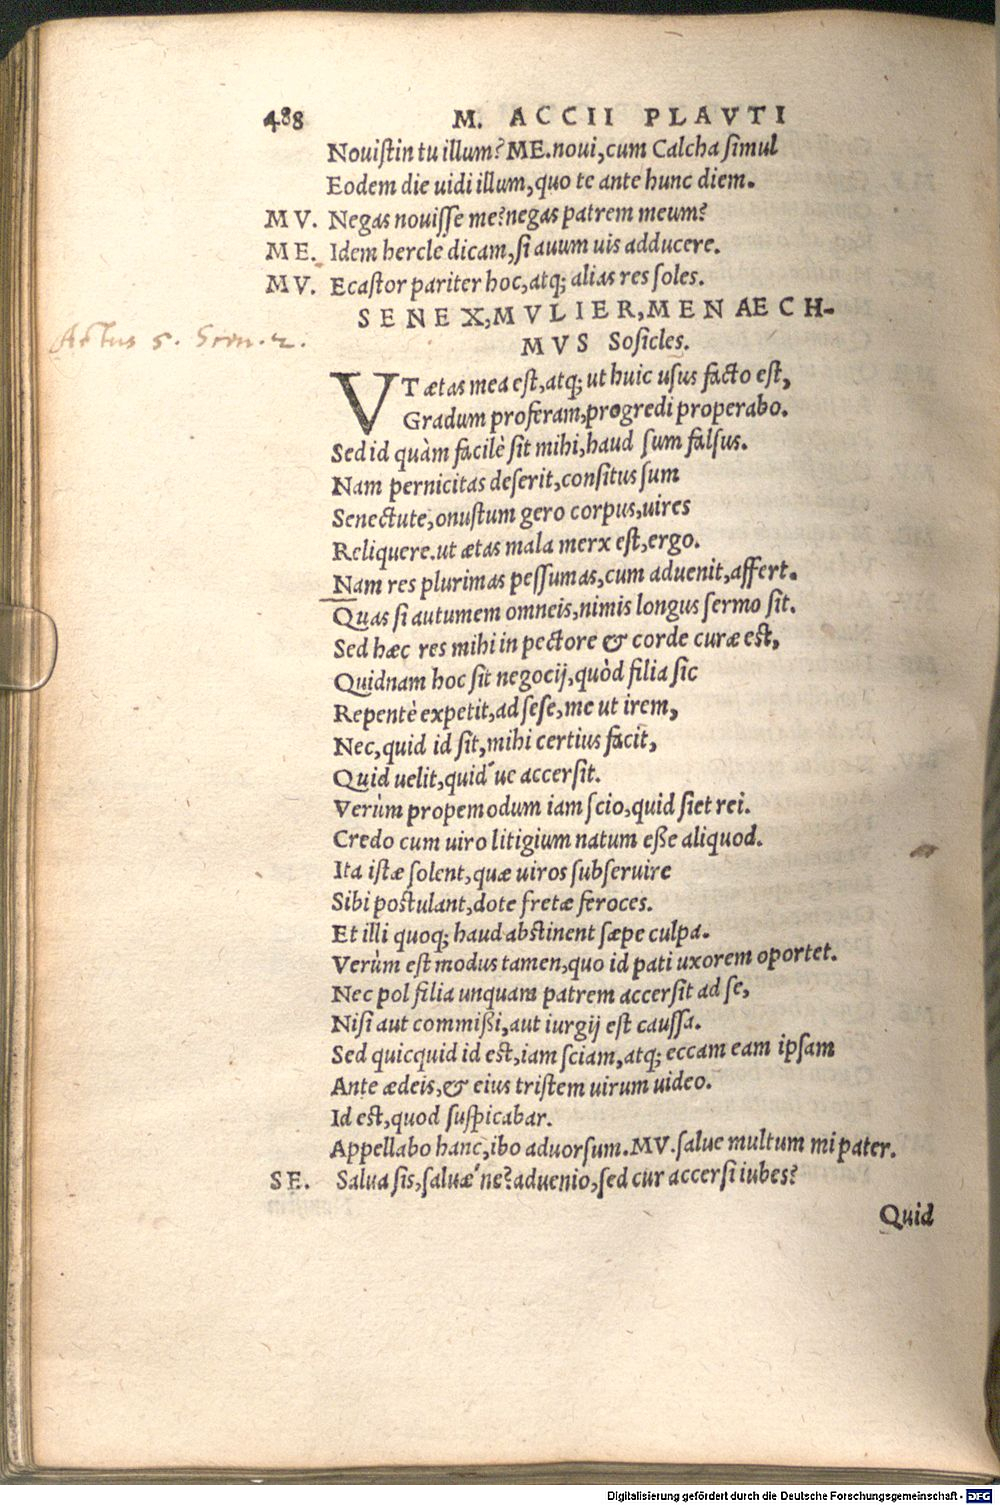 488 M. ACCII PLAVTI
Nouistin tu illum? ME. noui, cum Calcha simul
Eodem die uidi illum, quo te ante hunc diem.
MV. Negas nouisse me? negas patrem meum?
ME. Idem hercle dicam, si auum uis adducere.
MV. Ecastor pariter hoc, atq; alias res soles.
SENEX, MVLIER, MENAECH-
MVS Sosicles.
Actus 5. Scen. 2.
VT ætas mea est, atq; ut huic usus facto est,
Gradum proferam, progredi properabo.
Sed id quàm facilè sit mihi, haud sum falsus.
Nam pernicitas deserit, consitus sum
Senectute, onustum gero corpus, uires
Reliquere. ut ætas mala merx est, ergo.
Nam res plurimas pessumas, cum aduenit, affert.
Quas si autumem omneis, nimis longus sermo sit.
Sed hæc res mihi in pectore & corde curæ est,
Quidnam hoc sit negocij, quòd filia sic
Repentè expetit, ad sese, me ut irem,
Nec, quid id sit, mihi certius facit,
Quid uelit, quid'ue accersit.
Verùm propemodum iam scio, quid siet rei.
Credo cum uiro litigium natum esse aliquod.
Ita istæ solent, quæ uiros subseruire
Sibi postulant, dote fretæ feroces.
Et illi quoq; haud abstinent sæpe culpa.
Verùm est modus tamen, quo id pati uxorem oportet.
Nec pol filia unquam patrem accersit ad se,
Nisi aut commissi, aut iurgij est caussa.
Sed quicquid id est, iam sciam, atq; eccam eam ipsam
Ante ædeis, & eius tristem uirum uideo.
Id est, quod suspicabar.
Appellabo hanc, ibo aduorsum. MV. salue multum mi pater.
SE. Salua sis, saluæ'ne? aduenio, sed cur accersi iubes?
Quid
Digitalisierung gefördert durch die Deutsche Forschungsgemeinschaft - DFG